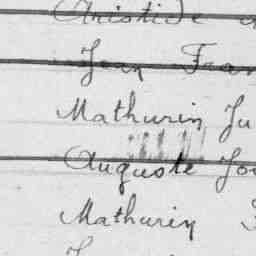 Aristide
Jean Fran
Mathurin Ju
Auguste Jo
Mathurin